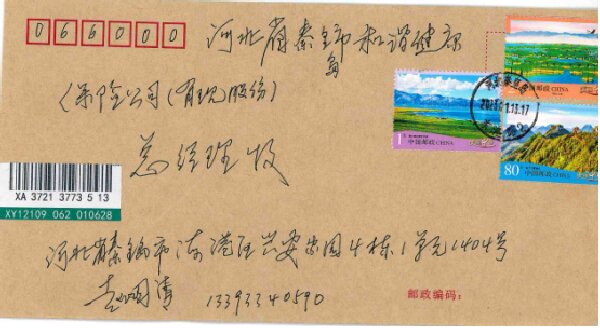 066000
河北省秦皇岛市和谐健康
保险公司(有限股份)
总经理收
1 中国邮政 CHINA
中国邮政 CHINA
80 中国邮政 CHINA
XA 3721 3773 5 13
XY12109 062 010628
河北省秦皇岛市海港区兴安家园4栋1单元1404号
13393340590
邮政编码: